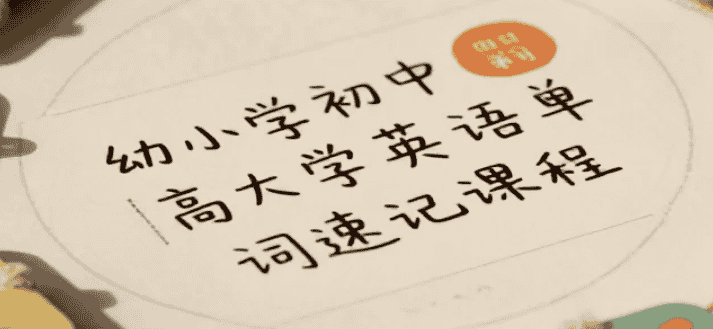 幼小学初中
高大学英语单
词速记课程